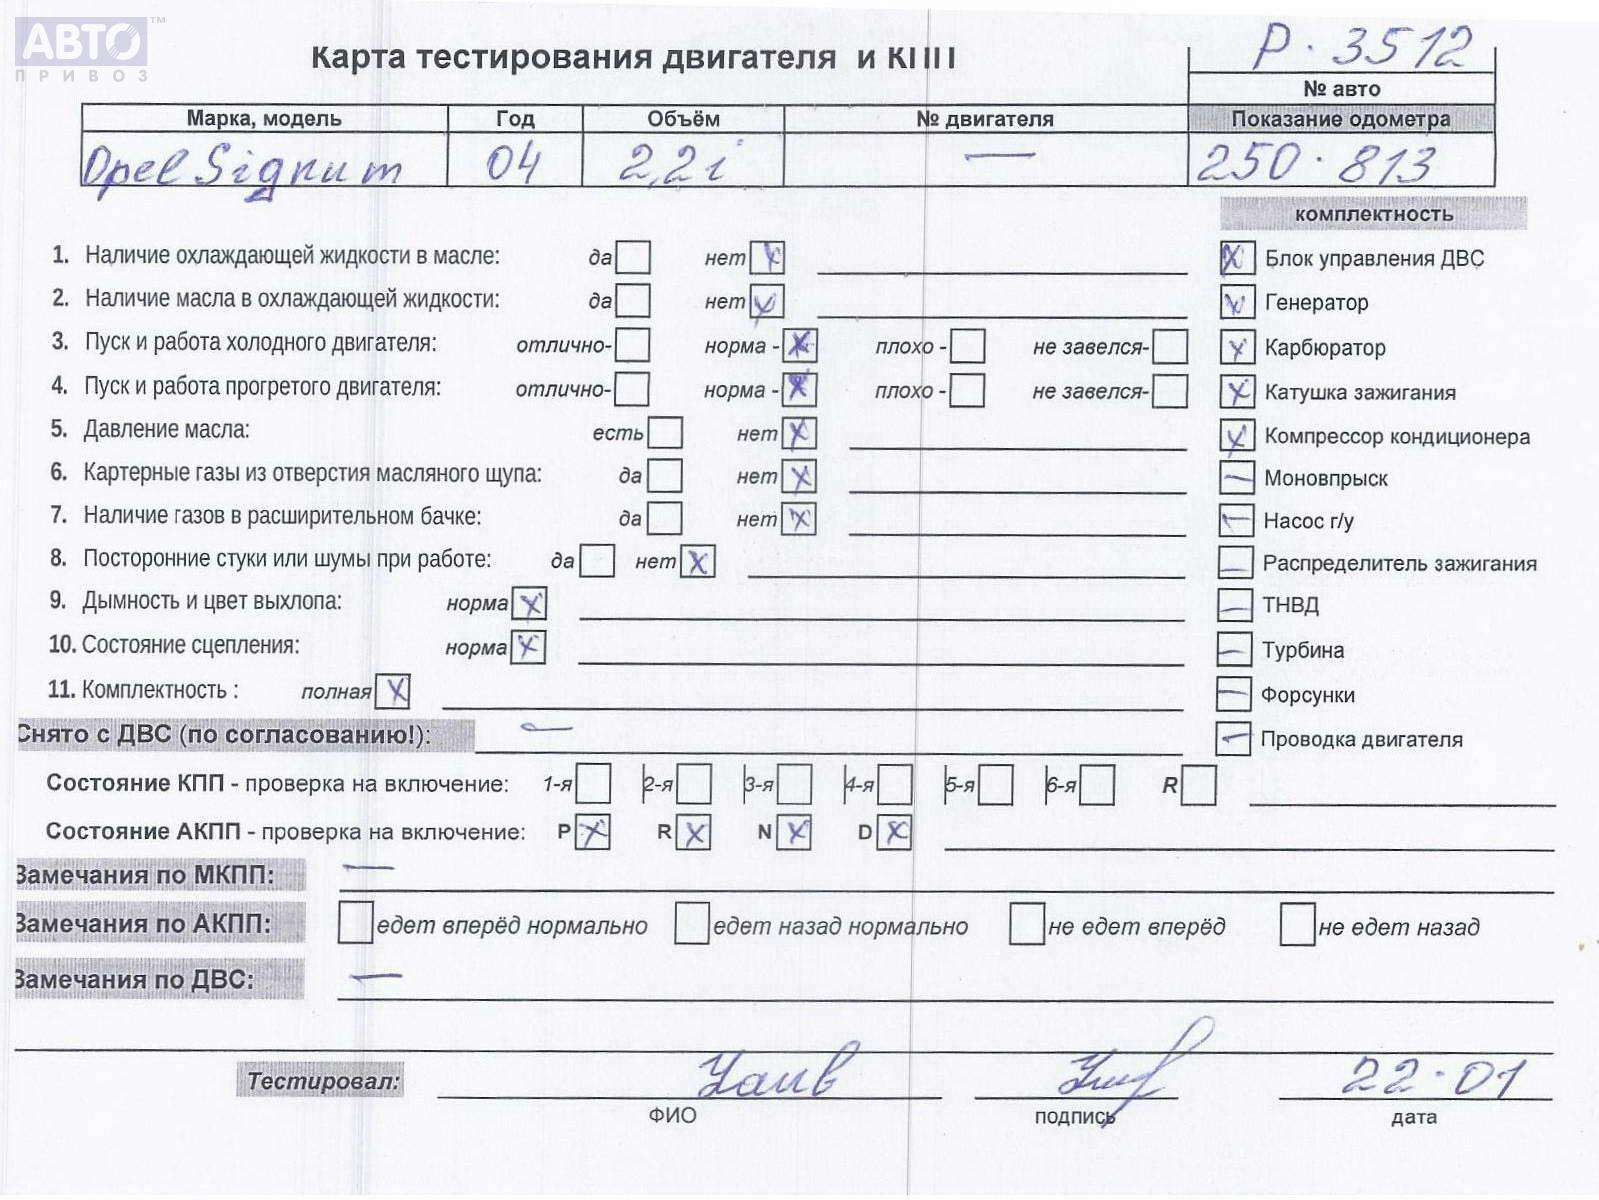 АВТО ™
ПРИВОЗ
Карта тестирования двигателя и КПП
Р. 3512
№ авто
Марка, модель Год Объём № двигателя Показание одометра
Opel Signum 04 2,2i — 250.813
комплектность
1. Наличие охлаждающей жидкости в масле: да нет x
x Блок управления ДВС
2. Наличие масла в охлаждающей жидкости: да нет x
x Генератор
3. Пуск и работа холодного двигателя: отлично- норма - x плохо - не завелся-
x Карбюратор
4. Пуск и работа прогретого двигателя: отлично- норма - x плохо - не завелся-
x Катушка зажигания
5. Давление масла: есть нет x
x Компрессор кондиционера
6. Картерные газы из отверстия масляного щупа: да нет x
— Моновпрыск
7. Наличие газов в расширительном бачке: да нет x
— Насос г/у
8. Посторонние стуки или шумы при работе: да нет x
— Распределитель зажигания
9. Дымность и цвет выхлопа: норма x
— ТНВД
10. Состояние сцепления: норма x
— Турбина
11. Комплектность : полная x
— Форсунки
Снято с ДВС (по согласованию!): —
— Проводка двигателя
Состояние КПП - проверка на включение: 1-я 2-я 3-я 4-я 5-я 6-я R
Состояние АКПП - проверка на включение: P x R x N x D x
Замечания по МКПП: —
Замечания по АКПП: едет вперёд нормально едет назад нормально не едет вперёд не едет назад
Замечания по ДВС: —
Тестировал: 22.01
ФИО подпись дата